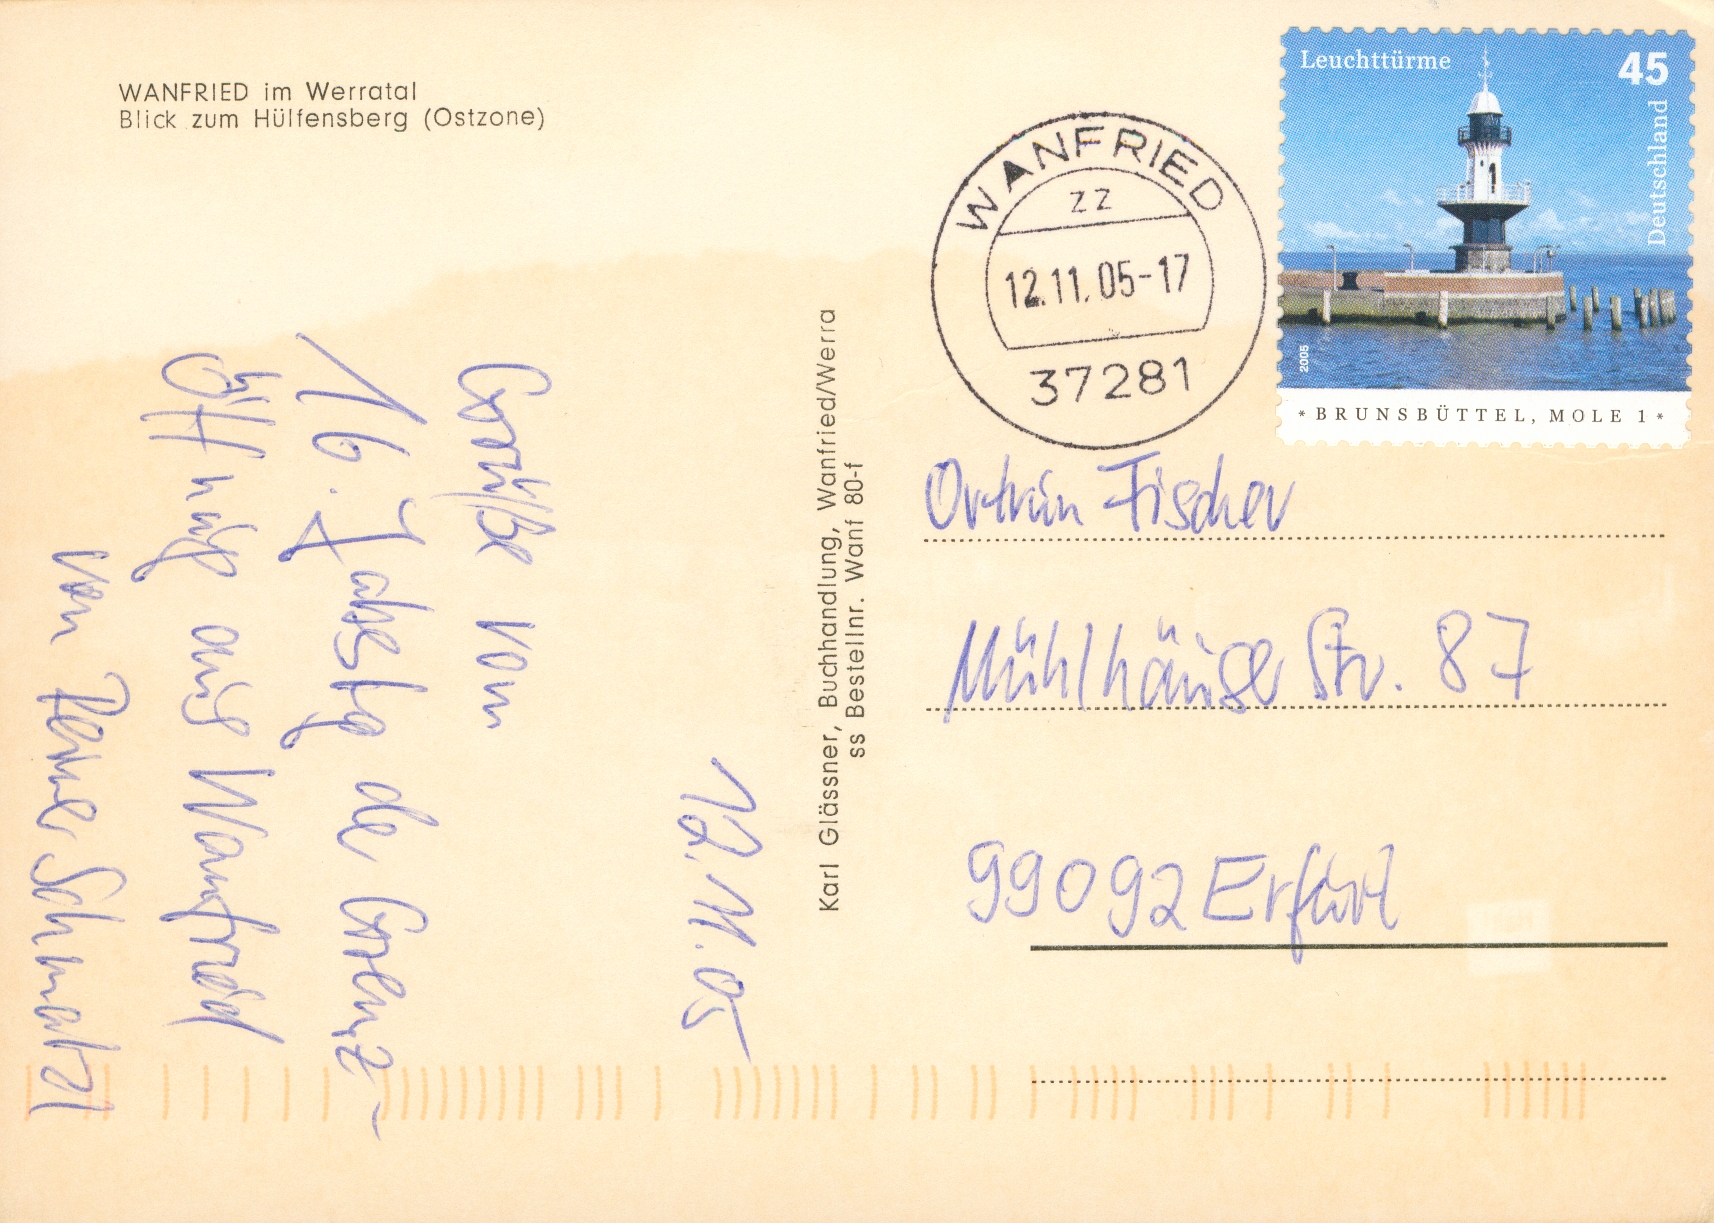 WANFRIED im Werratal
Blick zum Hülfensberg (Ostzone)
Leuchttürme
45
Deutschland
2005
* BRUNSBÜTTEL, MOLE 1 *
WANFRIED
zz
12.11.05-17
37281
Karl Glässner, Buchhandlung, Wanfried/Werra
ss Bestellnr. Wanf 80-f
12.11.05
Grüße vom
16. Jahrestag der Grenz-
öffnung aus Wanfried
von
Ortrun Fischer
Mühlhäuser Str. 87
99092 Erfurt